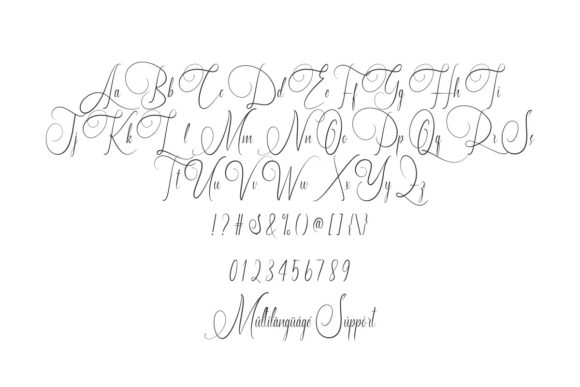 Aa Bb Cc Dd Ee Ff Gg Hh Ii
Jj Kk Ll Mm Nn Oo Pp Qq Rr Ss
Tt Uu Vv Ww Xx Yy Zz
!?#$&%()@[]{\}
0123456789
Mûltilàngüágé Súppòrt